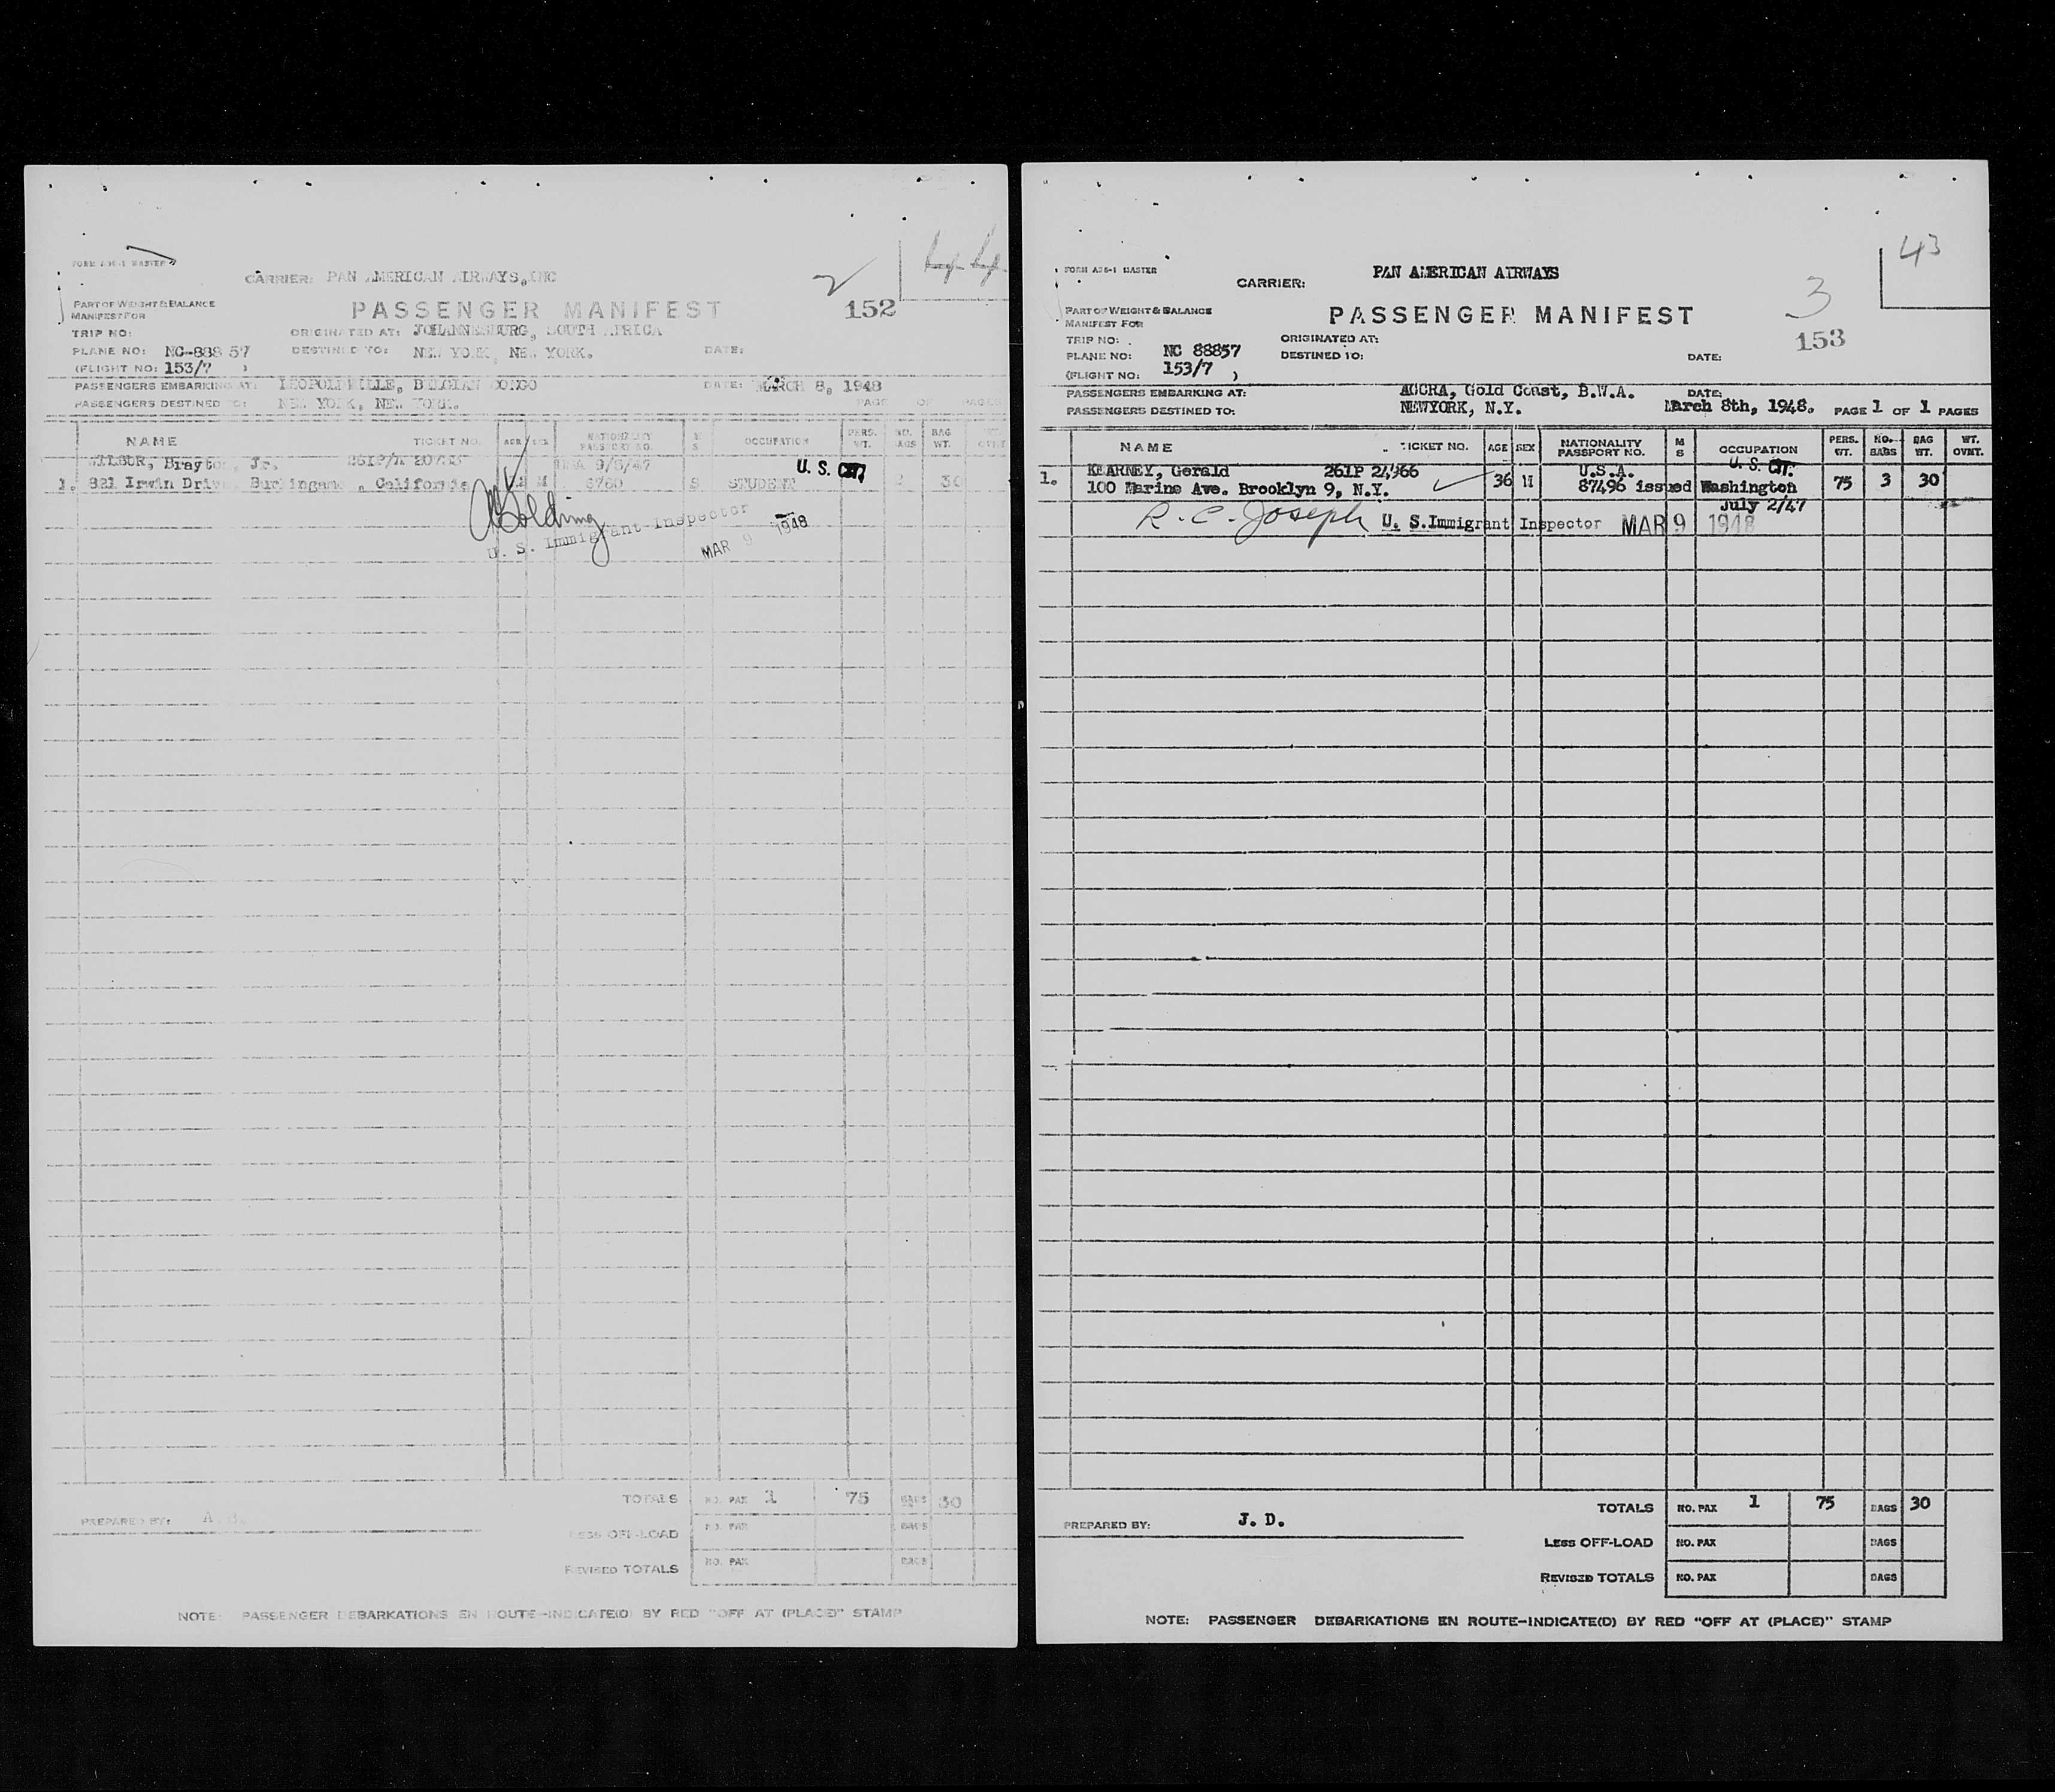 FORM A36-1 MASTER
CARRIER: PAN AMERICAN AIRWAYS, INC
2
152
PART OF WEIGHT & BALANCE
MANIFEST FOR
PASSENGER MANIFEST
TRIP NO:
ORIGINATED AT: JOHANNESBURG, SOUTH AFRICA
PLANE NO: NC-88857
DESTINED TO: NEW YORK, NEW YORK.
DATE:
(FLIGHT NO: 153/7 )
PASSENGERS EMBARKING AT: LEOPOLDVILLE, BELGIAN CONGO
DATE: MARCH 8, 1948
PASSENGERS DESTINED TO: NEW YORK, NEW YORK.
PAGE OF PAGES
NAME TICKET NO. AGE SEX NATIONALITY PASSPORT NO. M S OCCUPATION PERS. WT. NO. BAGS BAG WT. WT. OVNT.
WILBUR, Brayton, Jr. 261P/A USA 9/6/47 U. S. CIT.
1. 821 Irwin Drive, Burlingame, California M 6760 S STUDENT 30
U. S. Immigrant Inspector
MAR 9 1948
TOTALS NO. PAX 1 75 BAGS 30
PREPARED BY:
LESS OFF-LOAD NO. PAX BAGS
REVISED TOTALS NO. PAX BAGS
NOTE: PASSENGER DEBARKATIONS EN ROUTE-INDICATE(D) BY RED "OFF AT (PLACE)" STAMP
43
FORM A36-1 MASTER
CARRIER: PAN AMERICAN AIRWAYS
3
153
PART OF WEIGHT & BALANCE
MANIFEST FOR
PASSENGER MANIFEST
TRIP NO:
ORIGINATED AT:
PLANE NO: NC 88857
DESTINED TO:
DATE:
(FLIGHT NO: 153/7 )
PASSENGERS EMBARKING AT: ACCRA, Gold Coast, B.W.A.
DATE:
PASSENGERS DESTINED TO: NEWYORK, N.Y.
March 8th, 1948. PAGE 1 OF 1 PAGES
NAME TICKET NO. AGE SEX NATIONALITY PASSPORT NO. M S OCCUPATION PERS. WT. NO. BAGS BAG WT. WT. OVNT.
KEARNEY, Gerald 261P 24966 U.S.A. U. S. CIT.
1. 100 Marine Ave. Brooklyn 9, N.Y. 36 M 87496 issued Washington 75 3 30
July 2/47
R. C. Joseph U. S. Immigrant Inspector MAR 9 1948
TOTALS NO. PAX 1 75 BAGS 30
PREPARED BY: J. D.
LESS OFF-LOAD NO. PAX BAGS
REVISED TOTALS NO. PAX BAGS
NOTE: PASSENGER DEBARKATIONS EN ROUTE-INDICATE(D) BY RED "OFF AT (PLACE)" STAMP